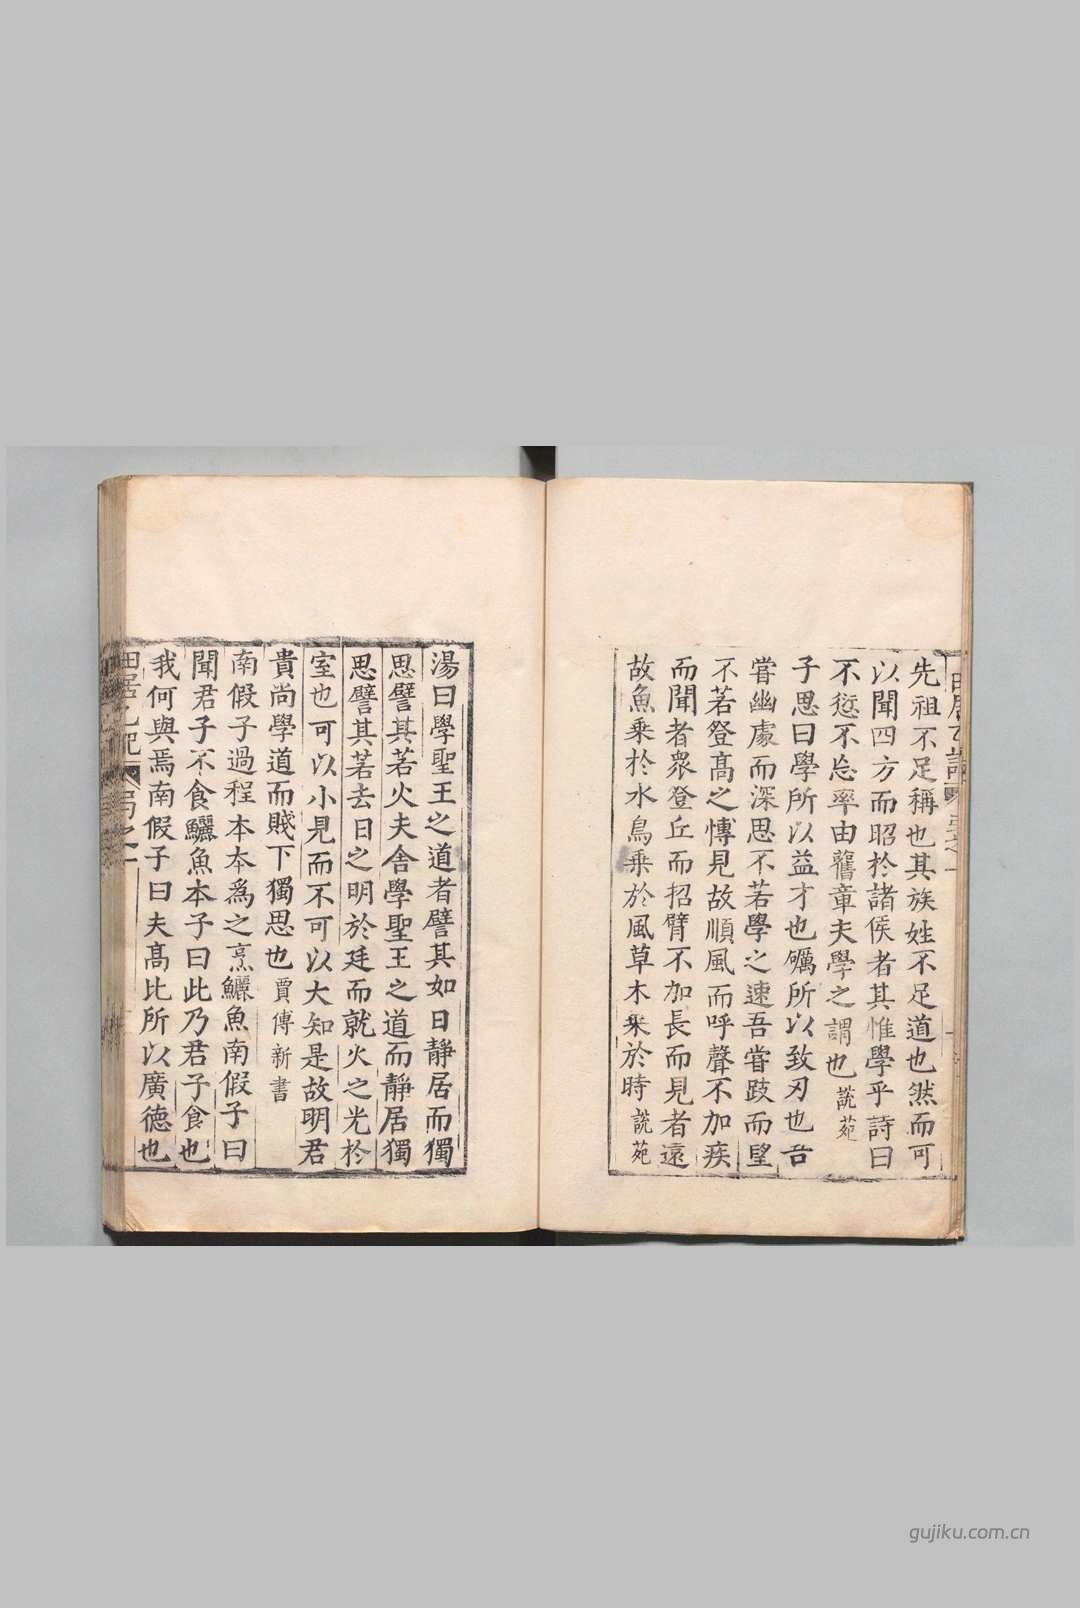 先祖不足稱也其族姓不足道也然而可
以聞四方而昭於諸侯者其惟學乎詩曰
不愆不忘率由舊章夫學之謂也說苑
子思曰學所以益才也礪所以致刃也吾
嘗幽處而深思不若學之速吾嘗跂而望
不若登高之博見故順風而呼聲不加疾
而聞者衆登丘而招臂不加長而見者遠
故魚乗於水鳥乗於風草木乗於時說苑
湯曰學聖王之道者譬其如日静居而獨
思譬其若火夫舍學聖王之道而静居獨
思譬其若去日之明於廷而就火之光於
室也可以小見而不可以大知是故明君
貴尚學道而賤下獨思也賈傅新書
南假子過程本本爲之烹鱺魚南假子曰
聞君子不食鱺魚本子曰此乃君子食也
我何與焉南假子曰夫高比所以廣德也
gujiku.com.cn